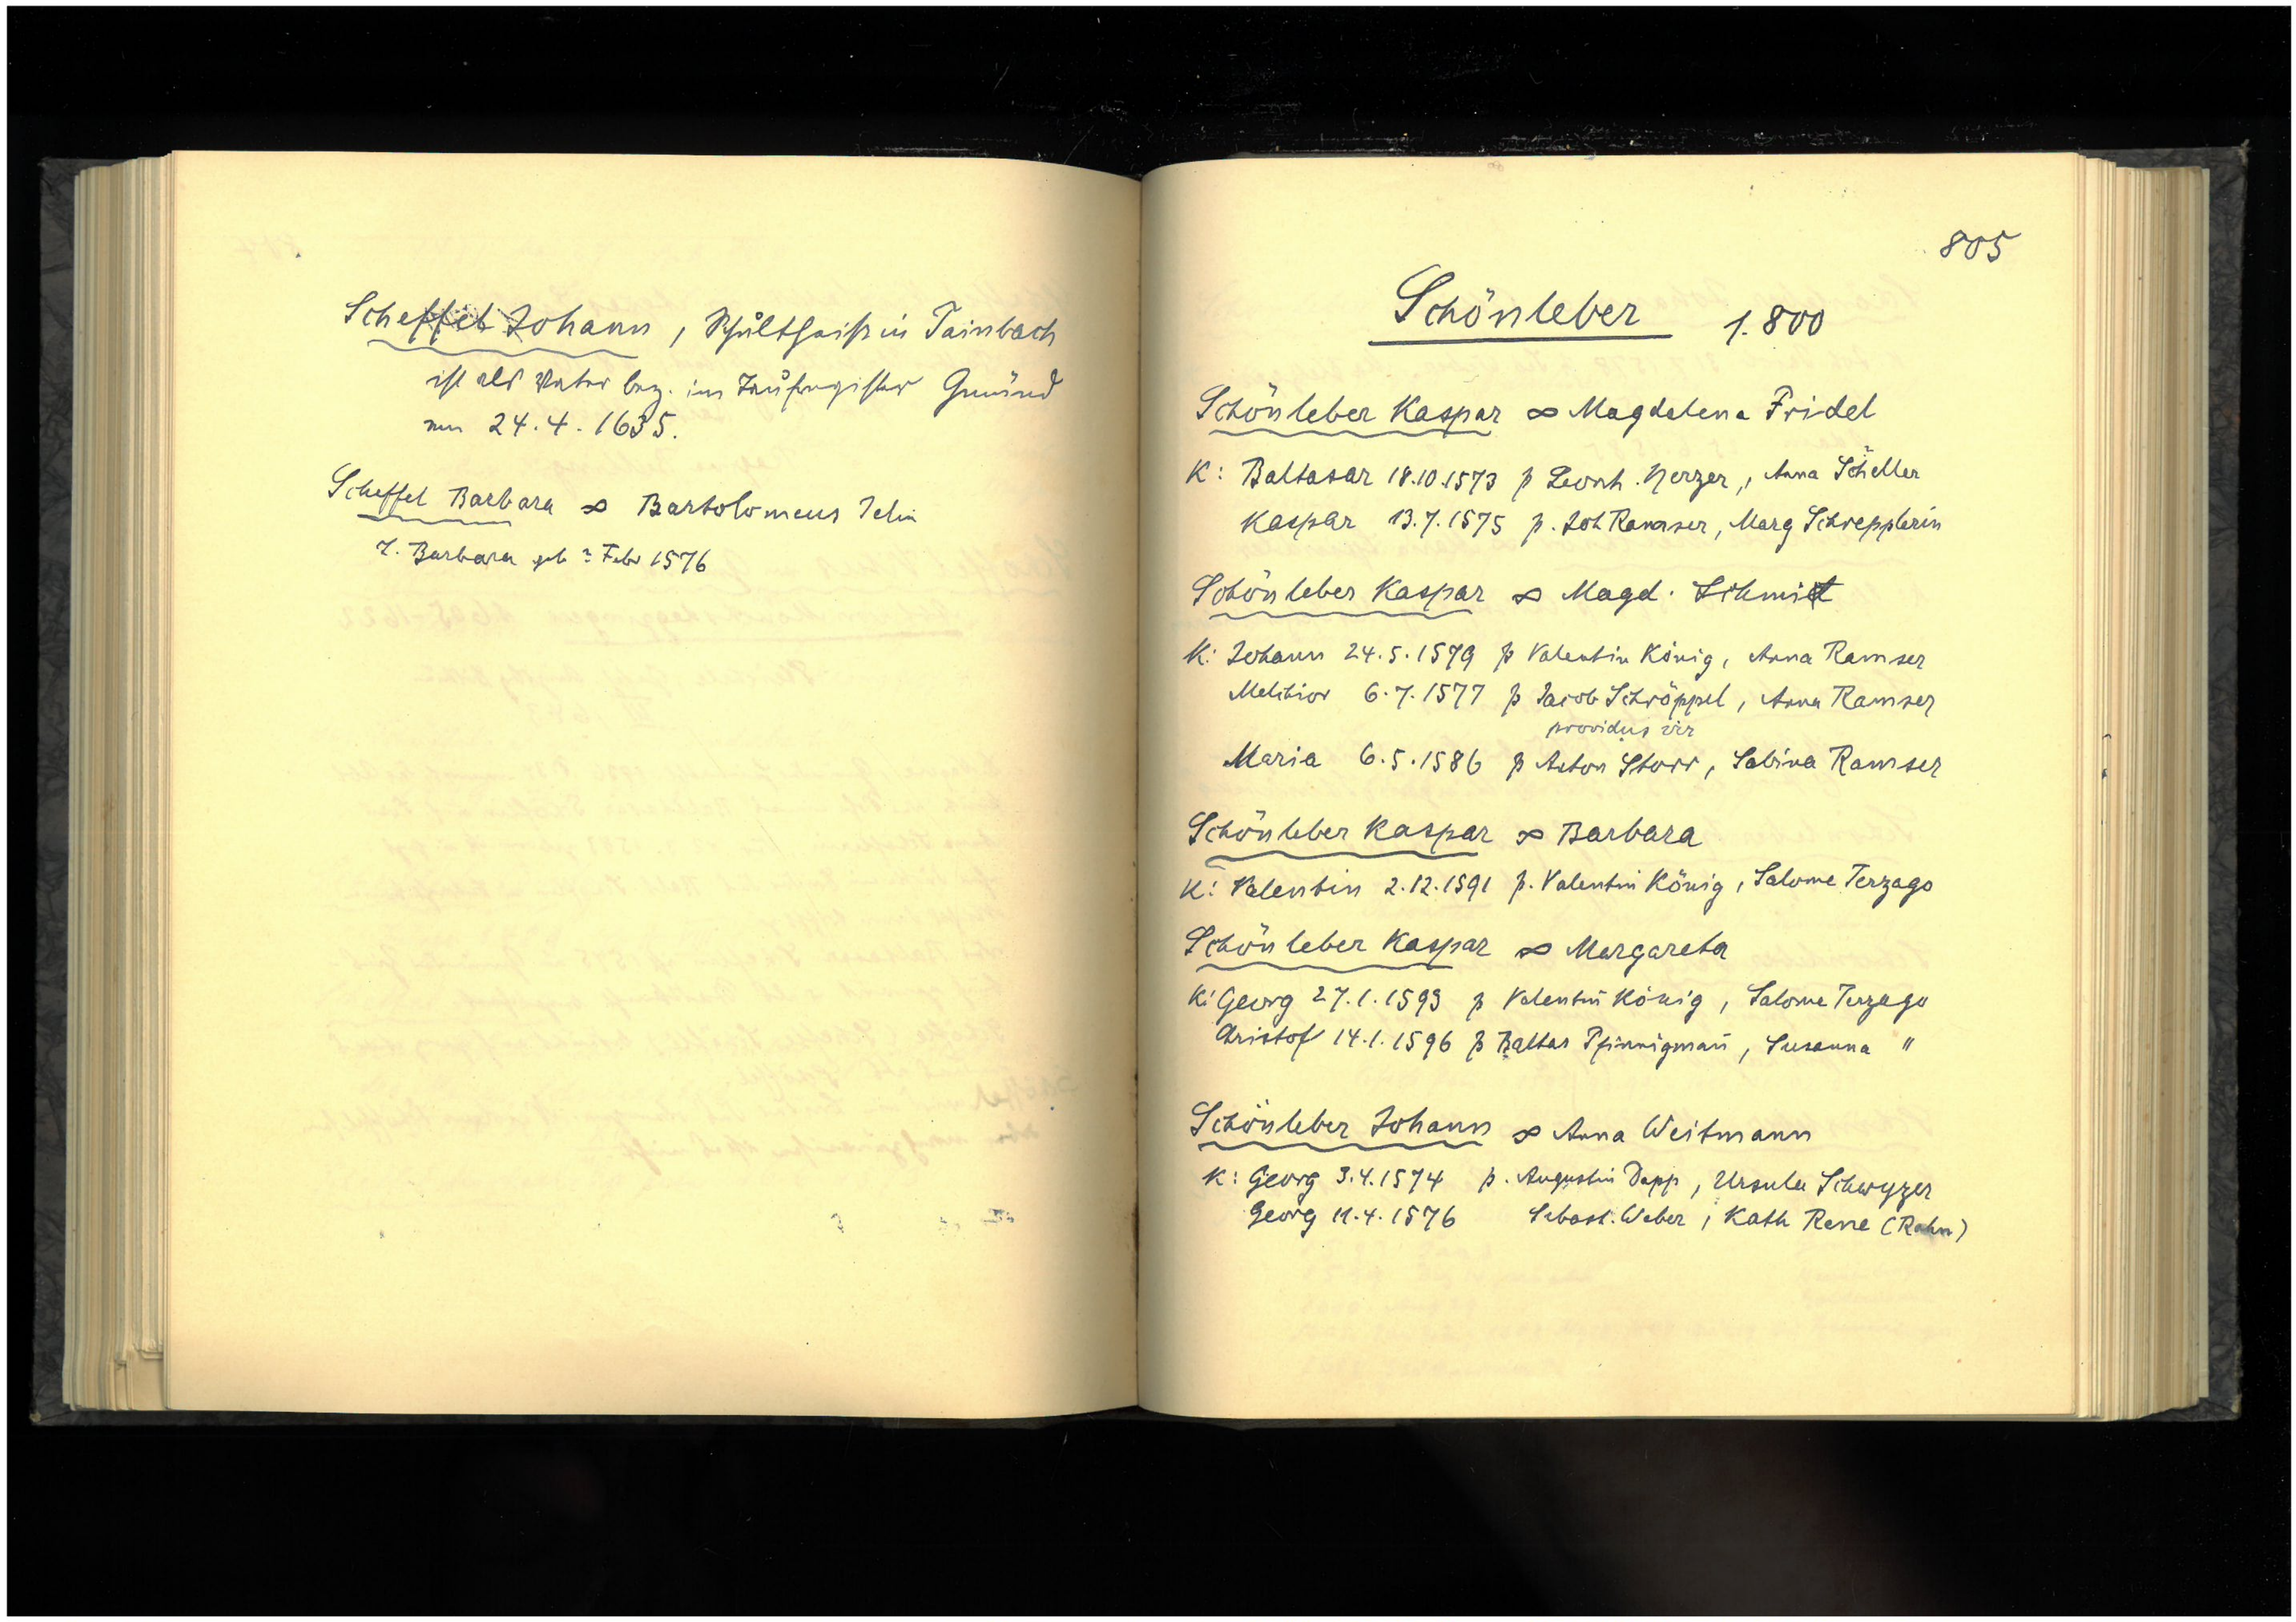 Scheffel Johann, Schultheiß in Tainbach
ist als Vater bez. im Taufregister Gmünd
am 24.4.1635.
Scheffel Barbara ∞ Bartolomeus
T. Barbara geb ? Febr 1576
805
Schönleber 1.800
Schönleber Kaspar ∞ Magdalena Fridel
K: Baltasar 18.10.1573 p Leonh. Nerzer, Anna Scheller
Kaspar 13.7.1575 p. Joh Ramser, Marg Schrepplerin
Schönleber Kaspar ∞ Magd. Schmit
K: Johann 24.5.1579 p Valentin König, Anna Ramser
Melchior 6.7.1577 p Jacob Schröppel, Anna Ramser
providus vir
Maria 6.5.1586 p Anton Storr, Sabina Ramser
Schönleber Kaspar ∞ Barbara
K: Valentin 2.12.1591 p. Valentin König, Salome Terzago
Schönleber Kaspar ∞ Margareta
K: Georg 27.1.1593 p Valentin König, Salome Terzago
Christof 14.1.1596 p Baltas Pfinnigmañ, Susanna "
Schönleber Johann ∞ Anna Weitmann
K: Georg 3.4.1574 p. Augustin Dapp, Ursula Schwyzer
Georg 11.4.1576 Sebast. Weber, Kath Rene (Rahn)